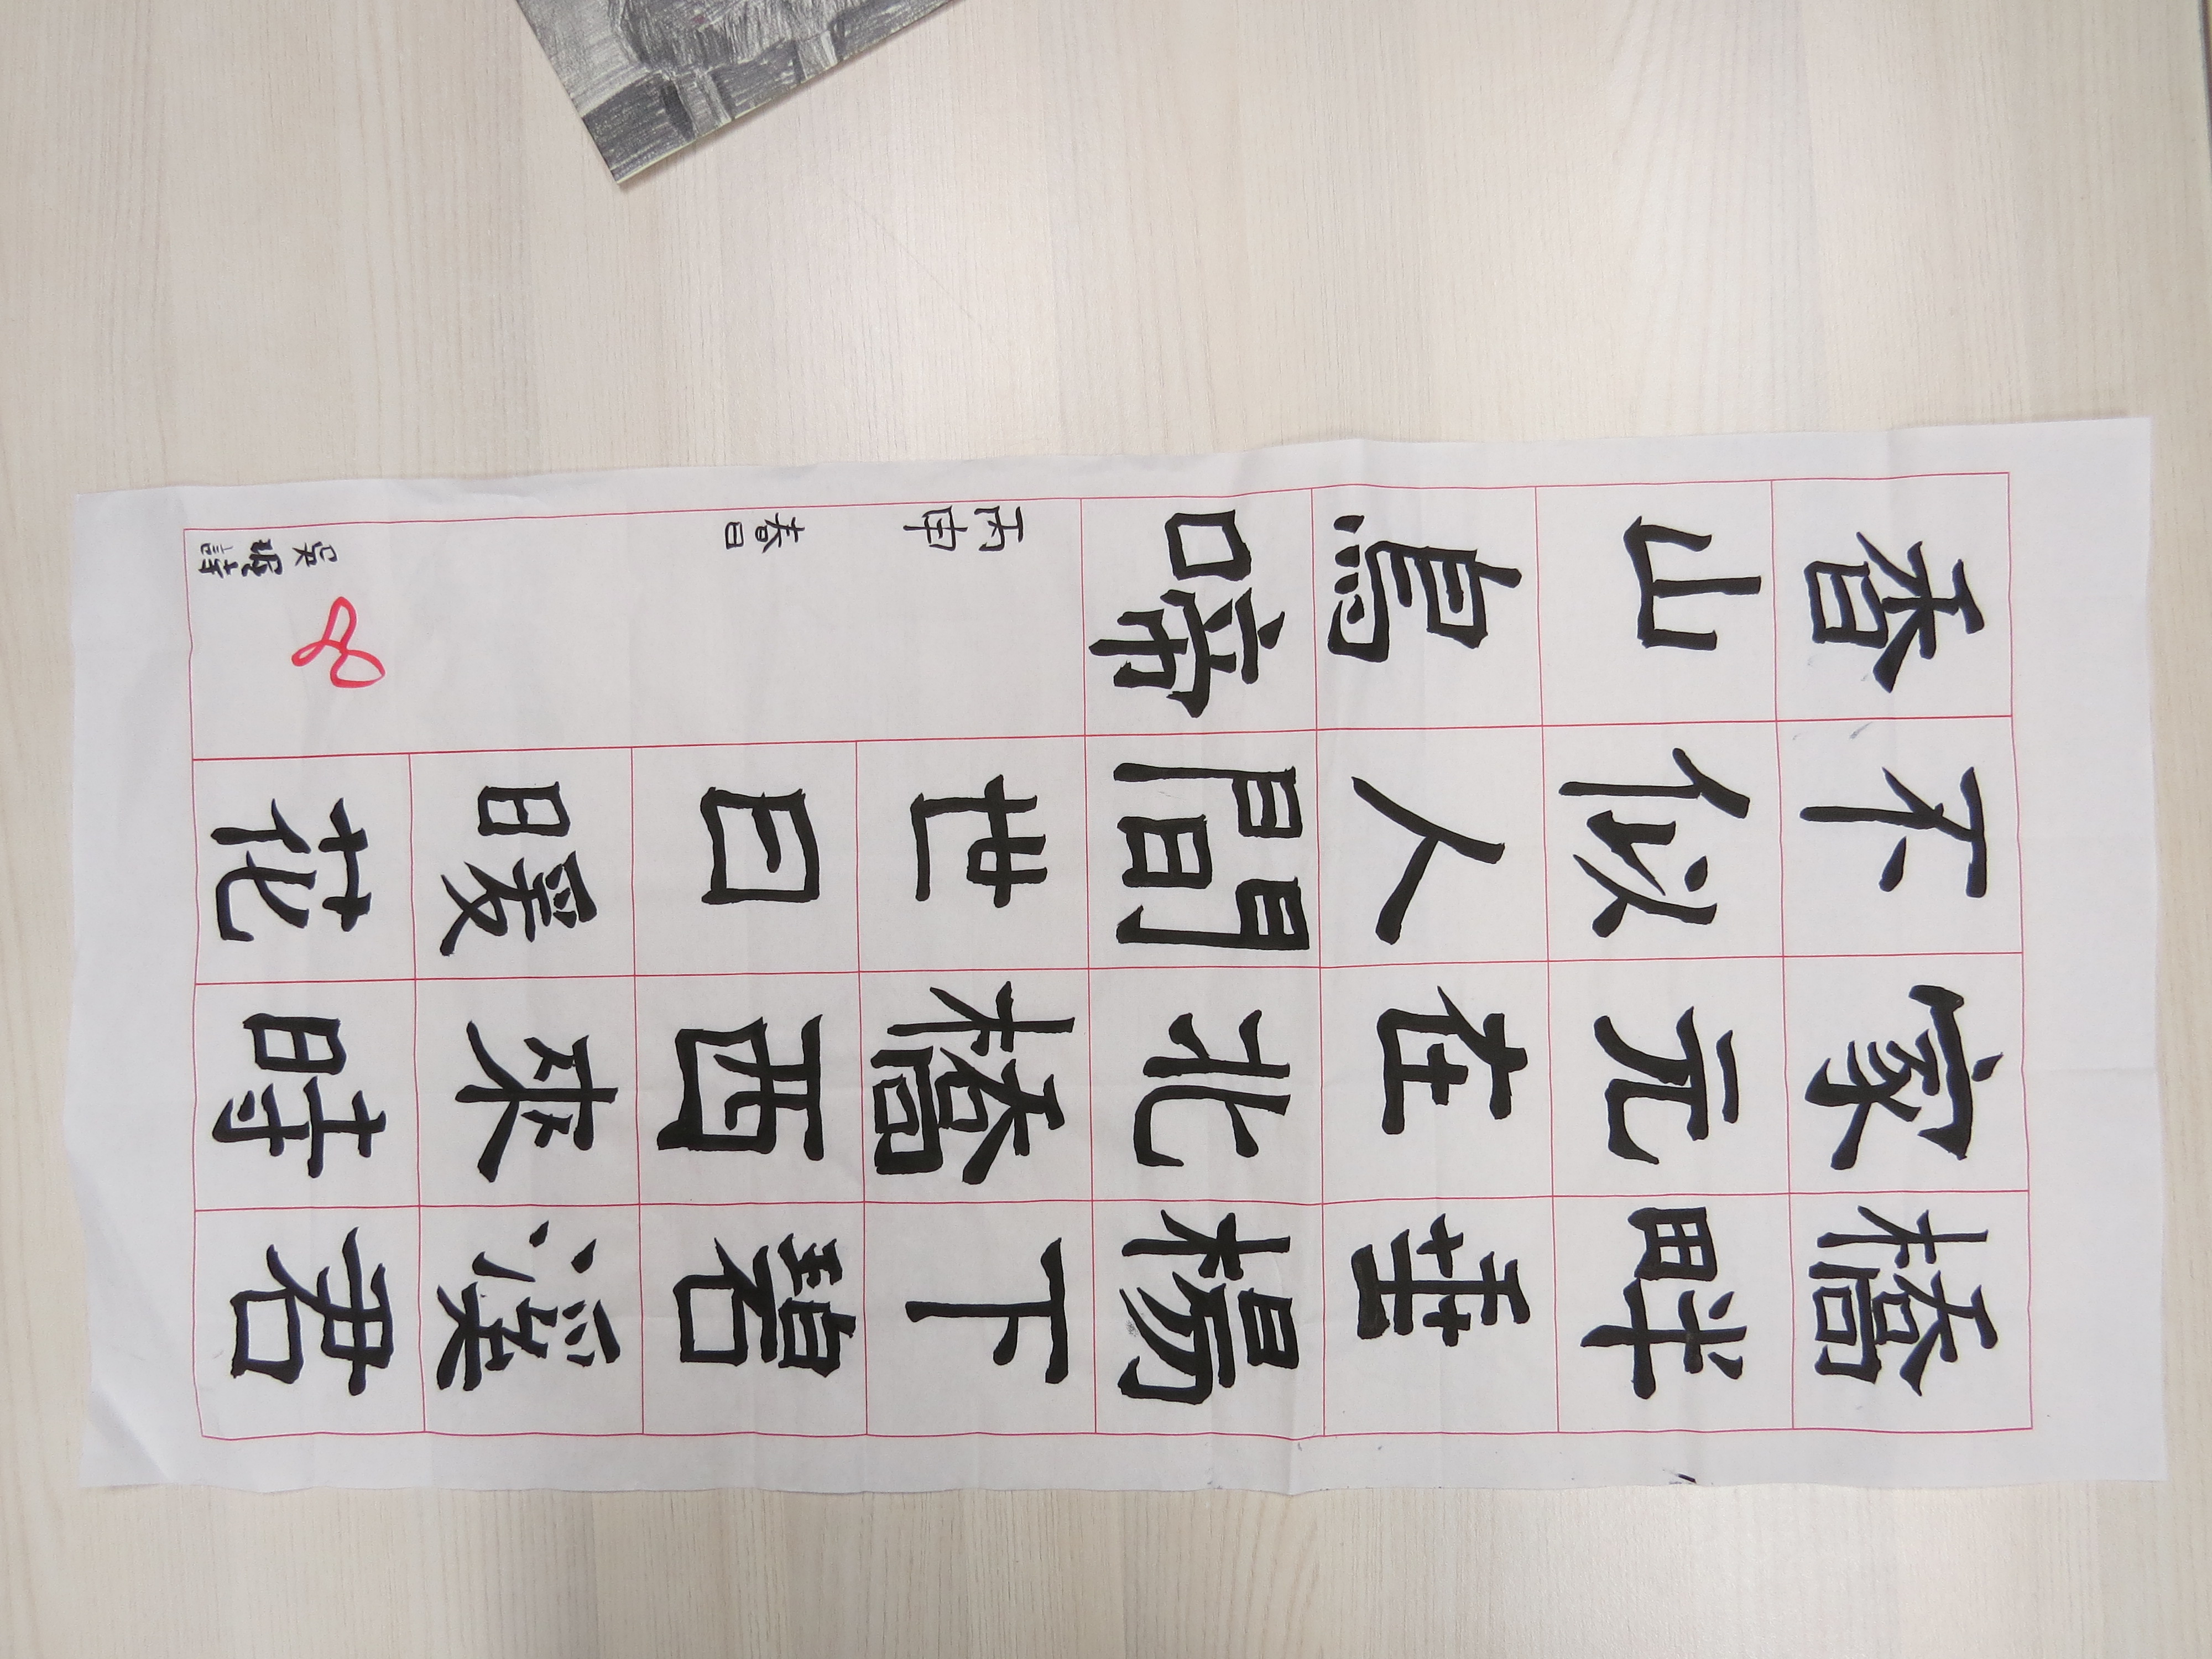 橋畔垂楊下碧溪君
家元在北橋西來時
不似人間世日暖花
香山鳥啼
丙申
春日
吳 詩